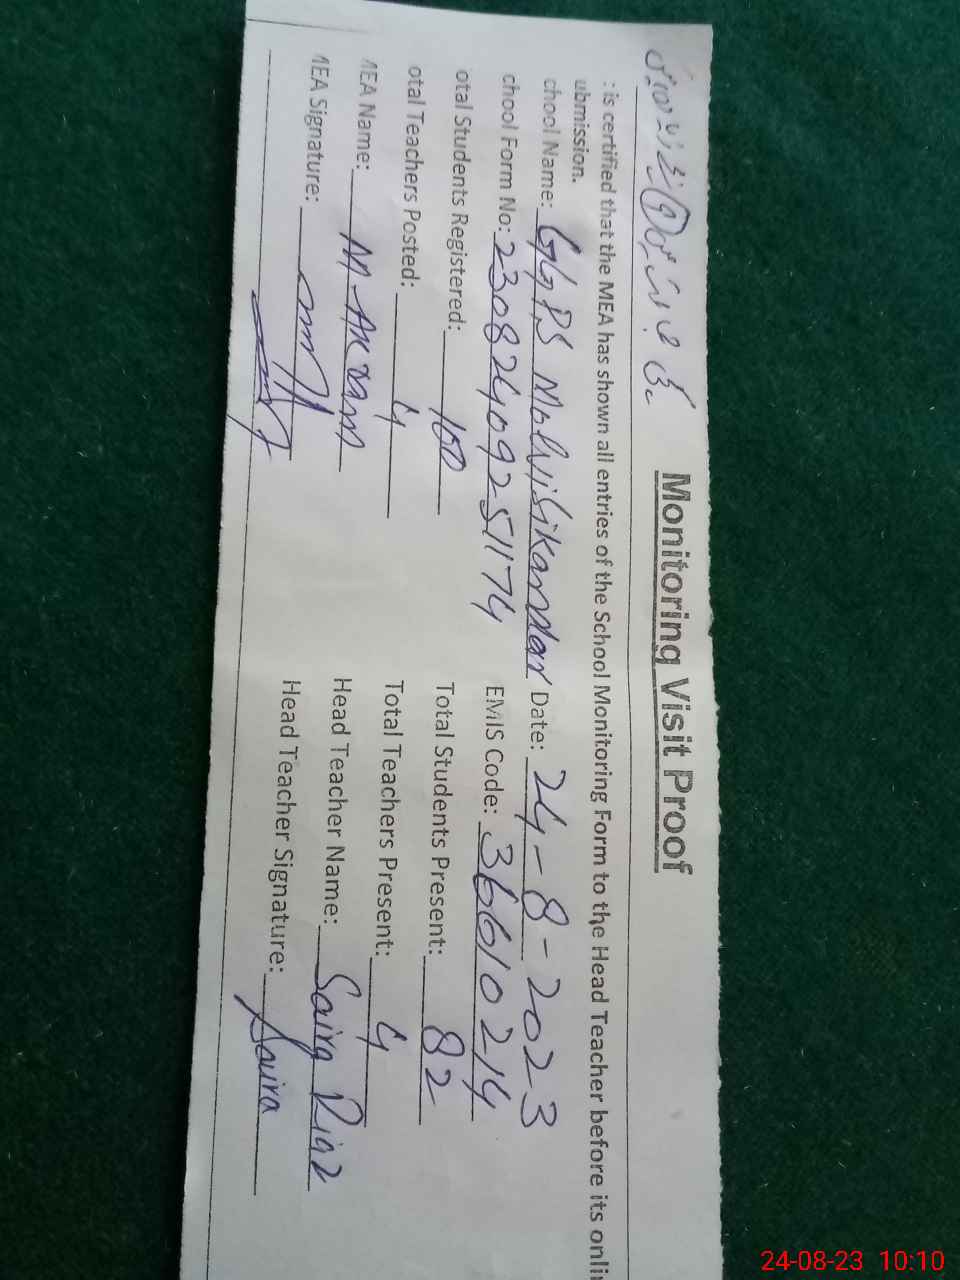 Monitoring Visit Proof
: is certified that the MEA has shown all entries of the School Monitoring Form to the Head Teacher before its onli
ubmission.
chool Name: GGPS Molvi Sikandar Date: 24-8-2023
chool Form No: 23082409251174 EMIS Code: 36610214
otal Students Registered: 100 Total Students Present: 82
otal Teachers Posted: 4 Total Teachers Present: 4
MEA Name: M-Akram Head Teacher Name: Saira Riaz
MEA Signature: Head Teacher Signature: Saira
24-08-23 10:10